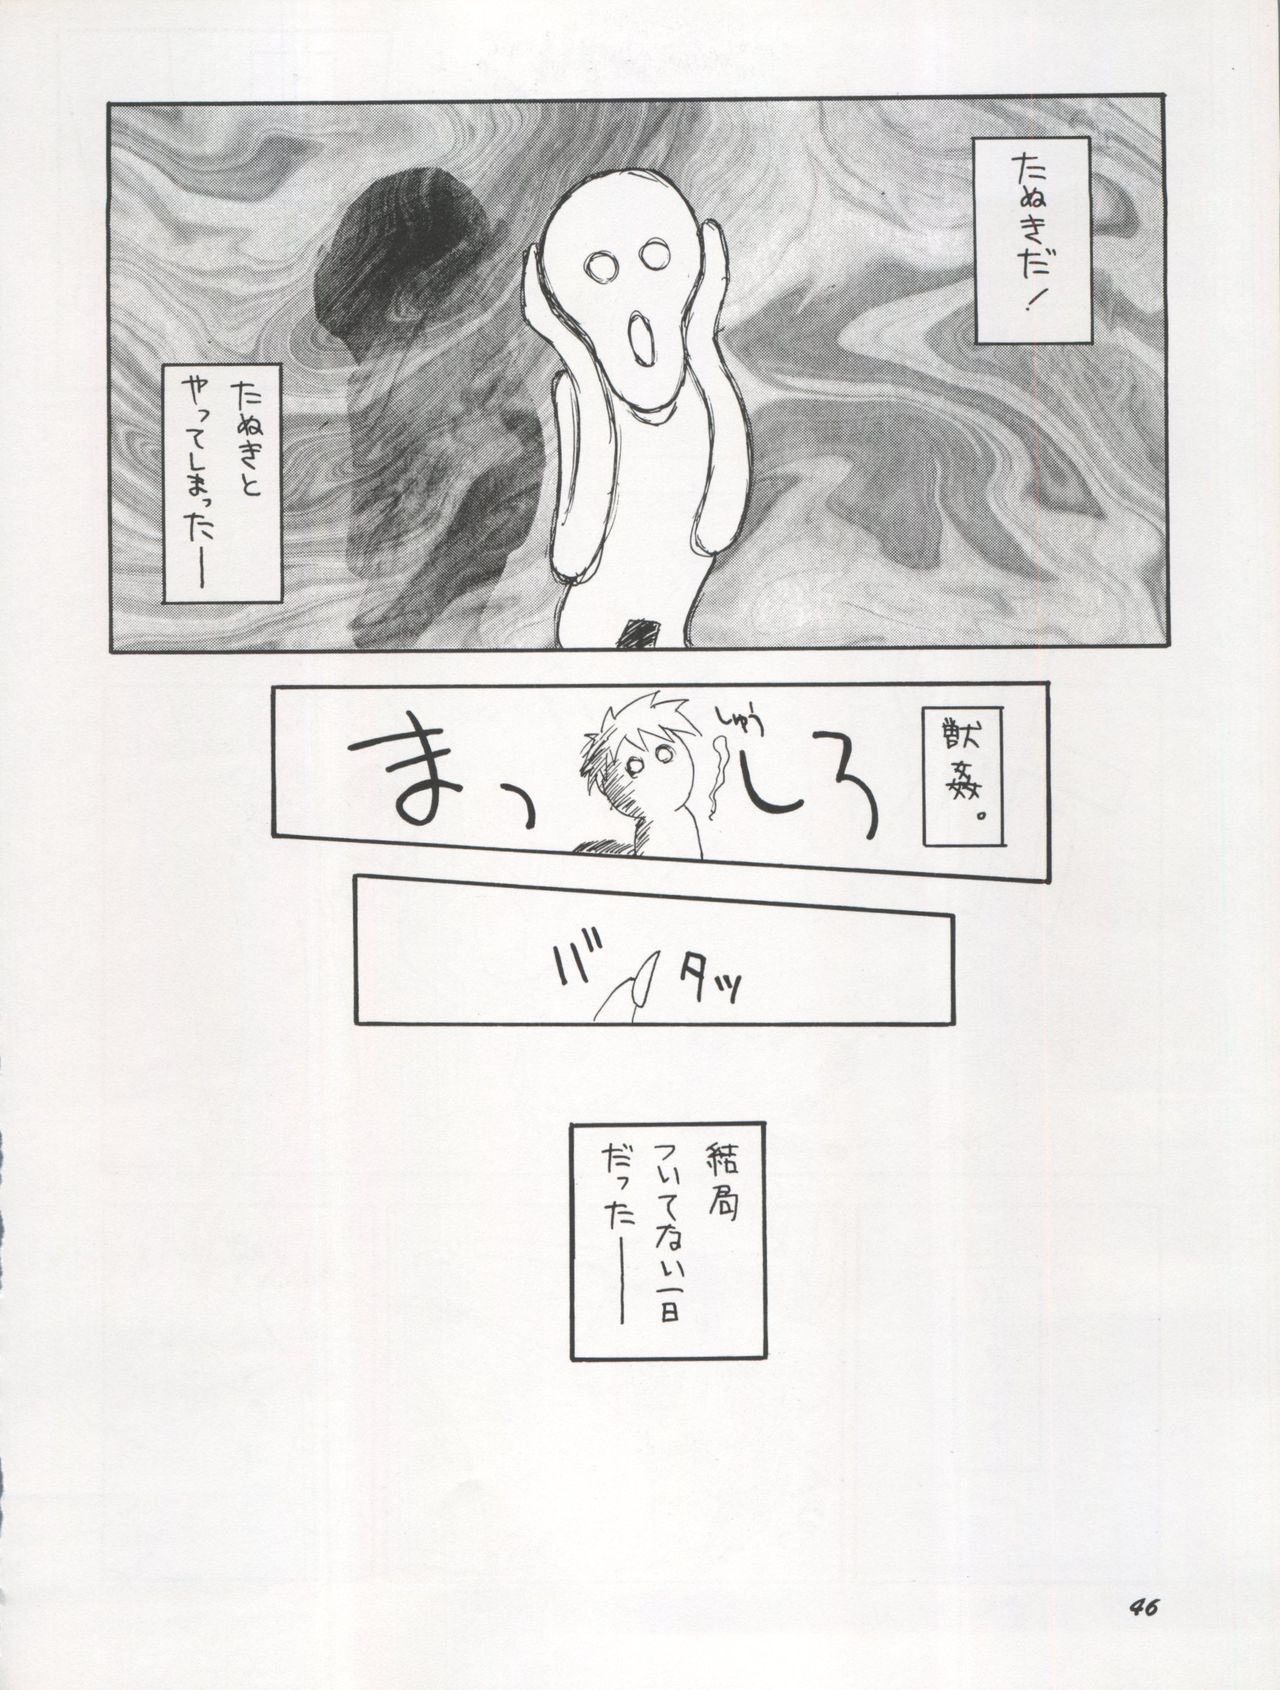 たぬきだ!
たぬきと
やってしまったー
獣姦。
まっしろ
しゅう
バタッ
結局
ついてない一日
だった——
46